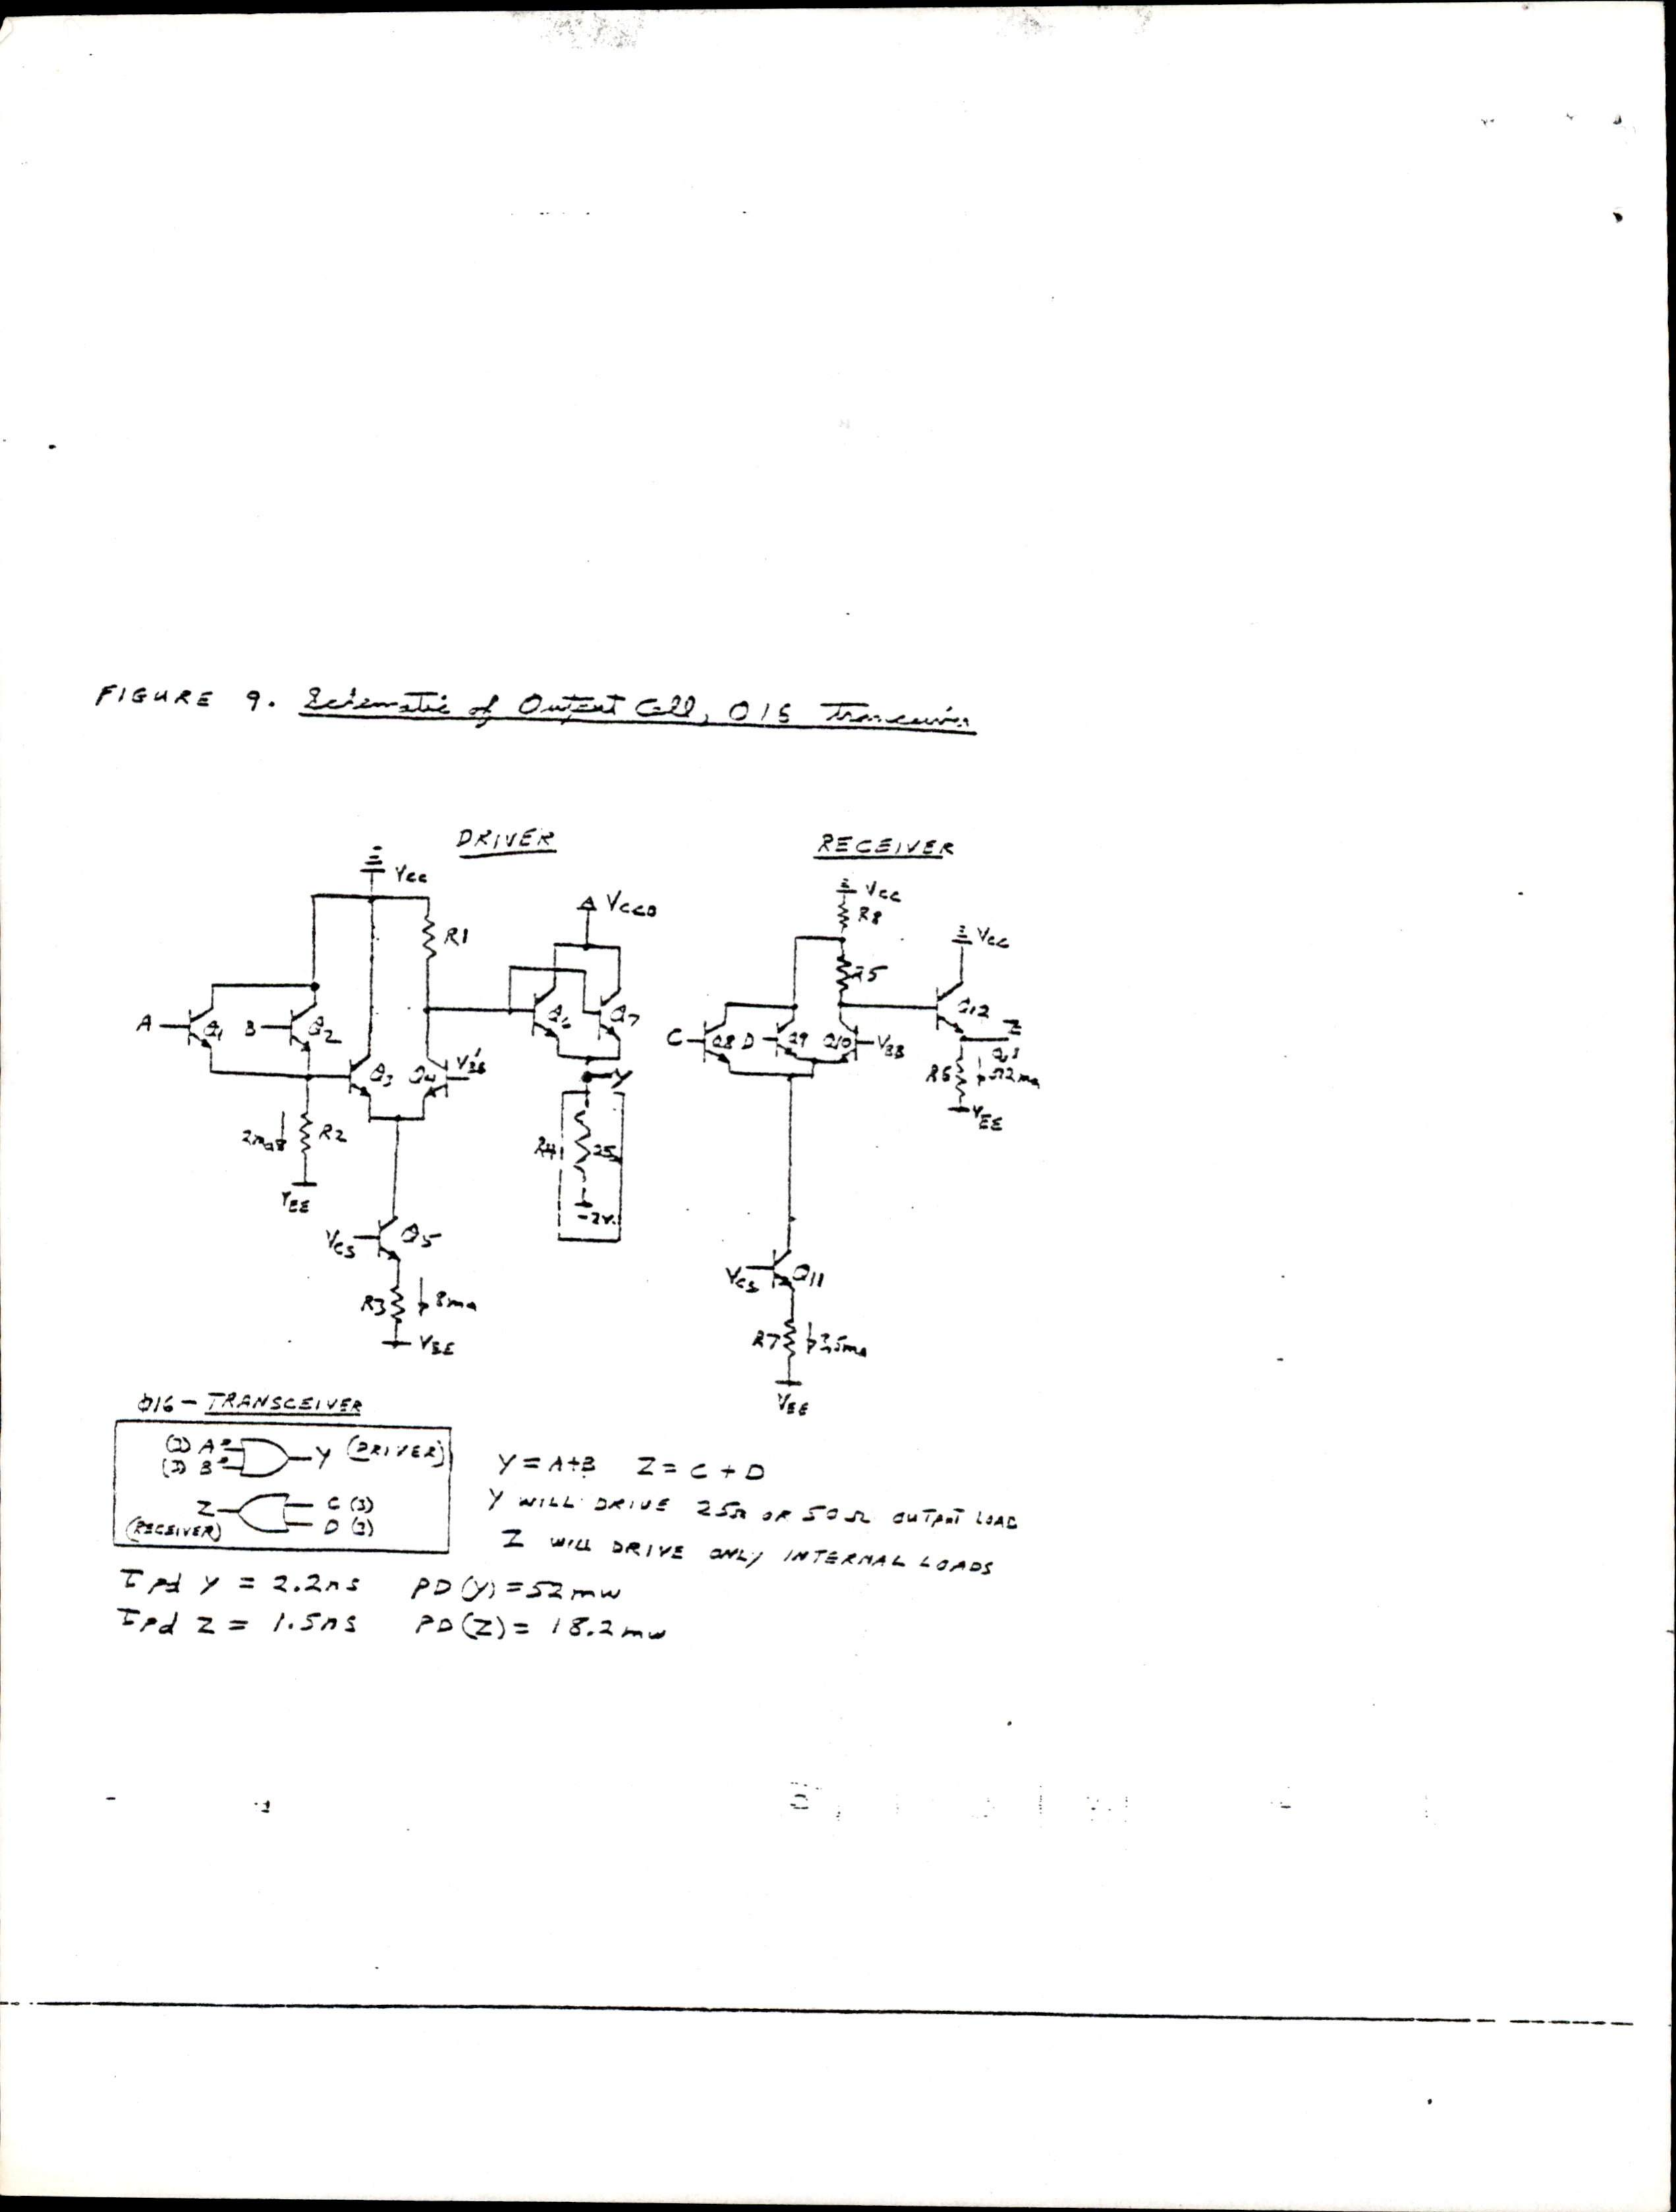 FIGURE 9. Schematic of Output Cell, O16 Tranceiver
DRIVER
RECEIVER
Vcc
R1
VCCO
A
Q1
B
Q2
Q3
Q4
V'BB
Q6
Q7
Y
2ma
R2
VEE
R4
25
-2v.
VCS
Q5
R3
8ma
VEE
Vcc
R8
R5
Vcc
Q12
Z
C
Q8
D
Q9
Q10
VBB
R6
VEE
VCS
Q11
R7
3.5ma
VEE
O16 - TRANSCEIVER
A
Y (DRIVER)
B
Z
C (3)
(RECEIVER)
D (3)
Y = A+B Z = C + D
Y WILL DRIVE 25Ω OR 50Ω OUTPUT LOAD
Z WILL DRIVE ONLY INTERNAL LOADS
Tpd Y = 2.2ns PD(Y) = 52mw
Tpd Z = 1.5ns PD(Z) = 18.2mw